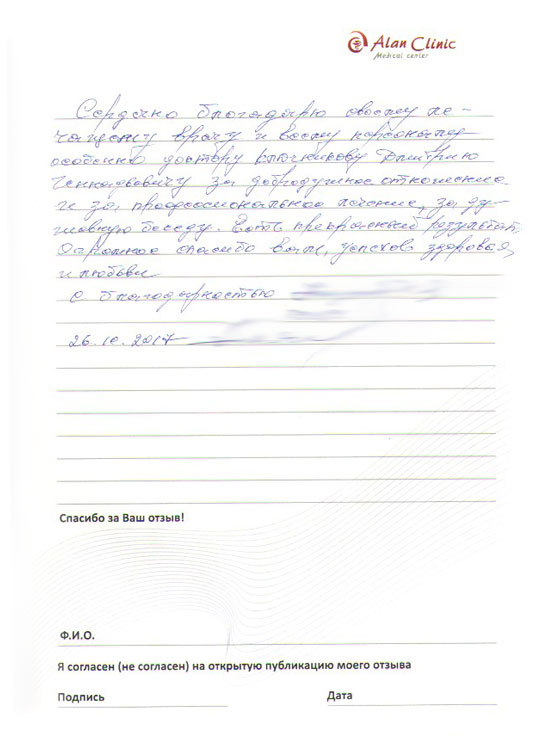 Alan Clinic
Medical center
Сердечно благодарю своему ле-
чащему врачу и всему персоналу
особенно доктору Ключникову Дмитрию
Геннадьевичу за добродушное отношение
и за профессиональное лечение, за ду-
шевную беседу. Есть прекрасный результат.
Огромное спасибо вам, успехов здоровья,
и любви
С благодарностью
26.10.2017
Спасибо за Ваш отзыв!
Ф.И.О.
Я согласен (не согласен) на открытую публикацию моего отзыва
Подпись Дата